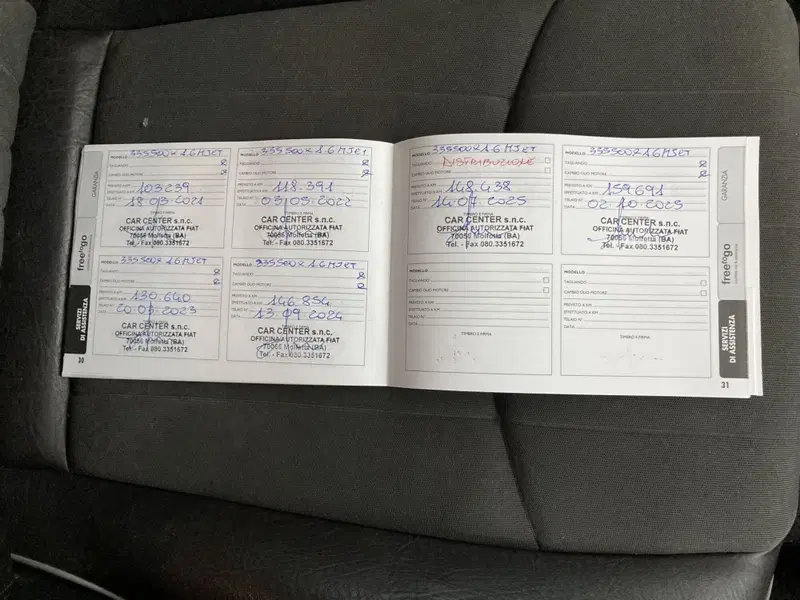 MODELLO 335 500X 1.6 MJET
TAGLIANDO
CAMBIO OLIO MOTORE
PREVISTO A KM
EFFETTUATO A KM 103239
TELAIO N°
DATA 18.03.2021
TIMBRO E FIRMA
CAR CENTER s.n.c.
OFFICINA AUTORIZZATA FIAT
70056 Molfetta (BA)
Tel.- Fax 080.3351672
MODELLO 335 500X 1.6 MJET
TAGLIANDO
CAMBIO OLIO MOTORE
PREVISTO A KM
EFFETTUATO A KM 118.391
TELAIO N°
DATA 03.05.2022
TIMBRO E FIRMA
CAR CENTER s.n.c.
OFFICINA AUTORIZZATA FIAT
70056 Molfetta (BA)
Tel.- Fax 080.3351672
MODELLO 335 500X 1.6 MJET
TAGLIANDO
CAMBIO OLIO MOTORE
PREVISTO A KM
EFFETTUATO A KM 130.640
TELAIO N°
DATA 2023
CAR CENTER s.n.c.
OFFICINA AUTORIZZATA FIAT
70056 Molfetta (BA)
Tel.- Fax 080.3351672
MODELLO 335 500X 1.6 MJET
TAGLIANDO
CAMBIO OLIO MOTORE
PREVISTO A KM
EFFETTUATO A KM 146.854
TELAIO N°
DATA 13.09.2024
CAR CENTER s.n.c.
OFFICINA AUTORIZZATA FIAT
70056 Molfetta (BA)
Tel.- Fax 080.3351672
GARANZIA
freetogo
SERVIZI
DI ASSISTENZA
30
MODELLO 335 500X 1.6 MJET
TAGLIANDO DISTRIBUZIONE
CAMBIO OLIO MOTORE
PREVISTO A KM
EFFETTUATO A KM 148.438
TELAIO N°
DATA 14.07.2025
TIMBRO E FIRMA
CAR CENTER s.n.c.
OFFICINA AUTORIZZATA FIAT
70056 Molfetta (BA)
Tel.- Fax 080.3351672
MODELLO 335 500X 1.6 MJET
TAGLIANDO
CAMBIO OLIO MOTORE
PREVISTO A KM
EFFETTUATO A KM 159691
TELAIO N°
DATA 02.10.2025
CAR CENTER s.n.c.
OFFICINA AUTORIZZATA FIAT
70056 Molfetta (BA)
Tel.- Fax 080.3351672
MODELLO
TAGLIANDO
CAMBIO OLIO MOTORE
PREVISTO A KM
EFFETTUATO A KM
TELAIO N°
DATA
TIMBRO E FIRMA
MODELLO
TAGLIANDO
CAMBIO OLIO MOTORE
PREVISTO A KM
EFFETTUATO A KM
TELAIO N°
DATA
TIMBRO E FIRMA
GARANZIA
freetogo
SERVIZI
DI ASSISTENZA
31